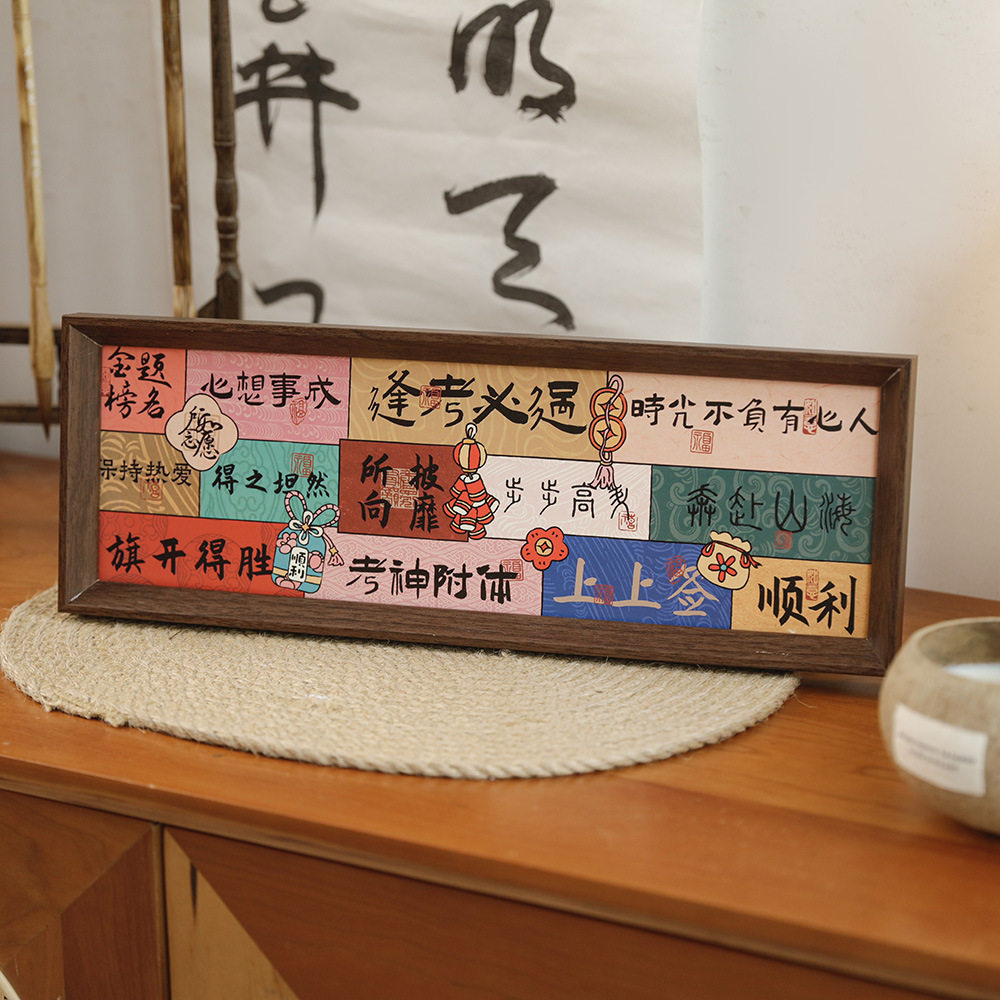 金榜题名
心想事成
逢考必過
時光不負有心人
所愿
保持热爱
得之坦然
所向披靡
步步高
奔赴山海
旗开得胜
順利
考神附体
上上签
顺利